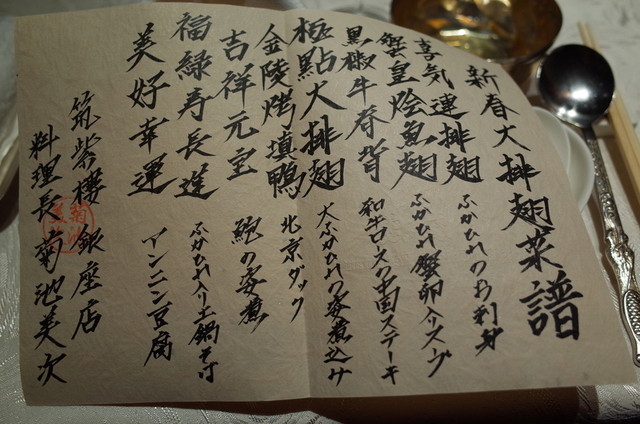 新春大排翅菜譜
喜気連排翅 ふかひれのお刺身
蟹皇烩魚翅 ふかひれ蟹卵入りスープ
黒椒牛脊背 和牛ロースの中国ステーキ
極點大排翅 大ふかひれの姿煮込み
金陵烤填鴨 北京ダック
吉祥元宝 鮑の姿煮
福緑寿長進 ふかひれ入り土鍋そば
美好幸運 アンニン豆腐
筑紫樓 銀座店
料理長 菊池美次